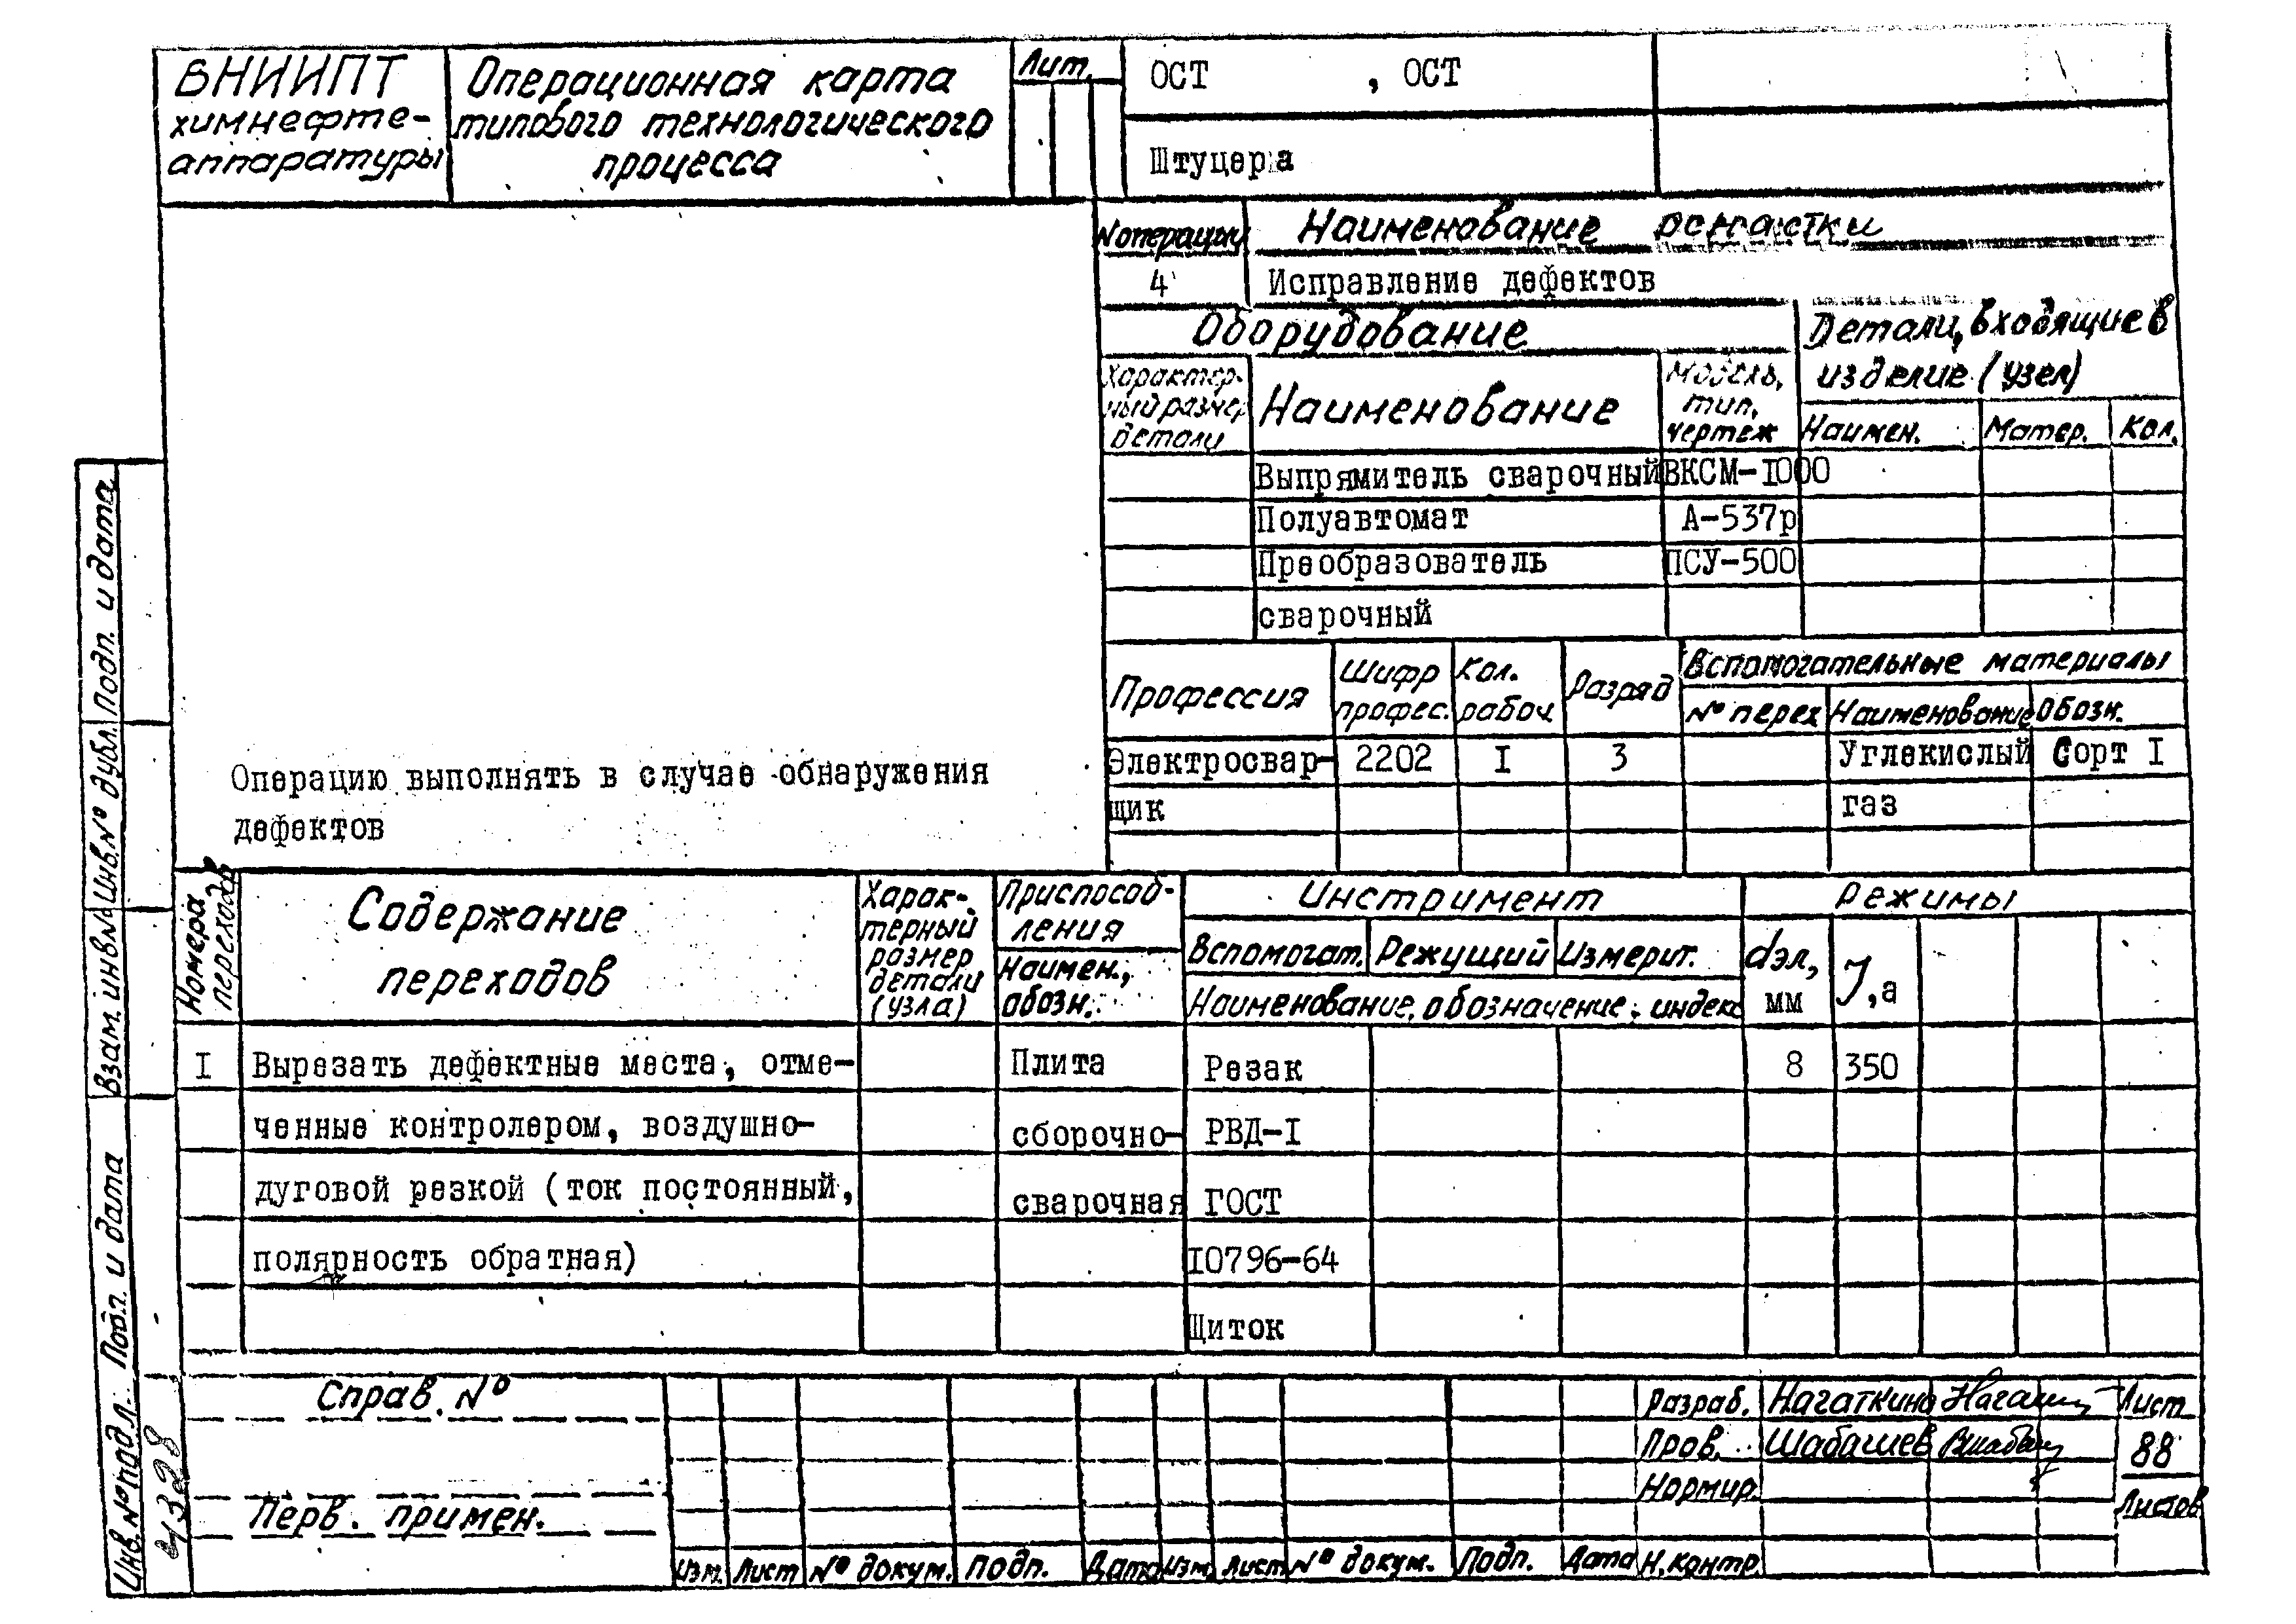 ВНИИПТ
химнефте-
аппаратуры
Операционная карта
типового технологического
процесса
Лит.
ОСТ , ОСТ
Штуцера
N операции
Наименование оснастки
4
Исправление дефектов
Оборудование
Детали, входящие в
изделие (узел)
Характер-
ный размер
детали
Наименование
Модель,
тип,
чертеж
Наимен.
Матер.
Кол.
Выпрямитель сварочный ВКСМ-I000
Полуавтомат А-537р
Преобразователь ПСУ-500
сварочный
Профессия
Шифр
профес.
Кол.
рабоч.
Разряд
Вспомогательные материалы
№ перех
Наименование
Обозн.
Электросвар- 2202 I 3 Углекислый Сорт I
щик газ
Операцию выполнять в случае обнаружения
дефектов
Номера
переходов
Содержание
переходов
Харак-
терный
размер
детали
(узла)
Приспособ-
ления
Наимен.,
обозн.
Инструмент
Вспомогат. Режущий Измерит.
Наименование, обозначение, индекс
Режимы
dэл,
мм
J,а
I Вырезать дефектные места, отме- Плита Резак 8 350
ченные контролером, воздушно- сборочно- РВД-I
дуговой резкой (ток постоянный, сварочная ГОСТ
полярность обратная) I0796-64
Щиток
Справ. №
Перв. примен.
Изм. Лист № докум. Подп. Дата Изм. Лист № докум. Подп. Дата
Разраб. Нагаткина
Пров. Шабашев
Нормир.
Н.контр.
Лист
88
Листов
Подп. и дата
Инв.№ дубл.
Взам. инв.№
Подп. и дата
Инв.№ подл.